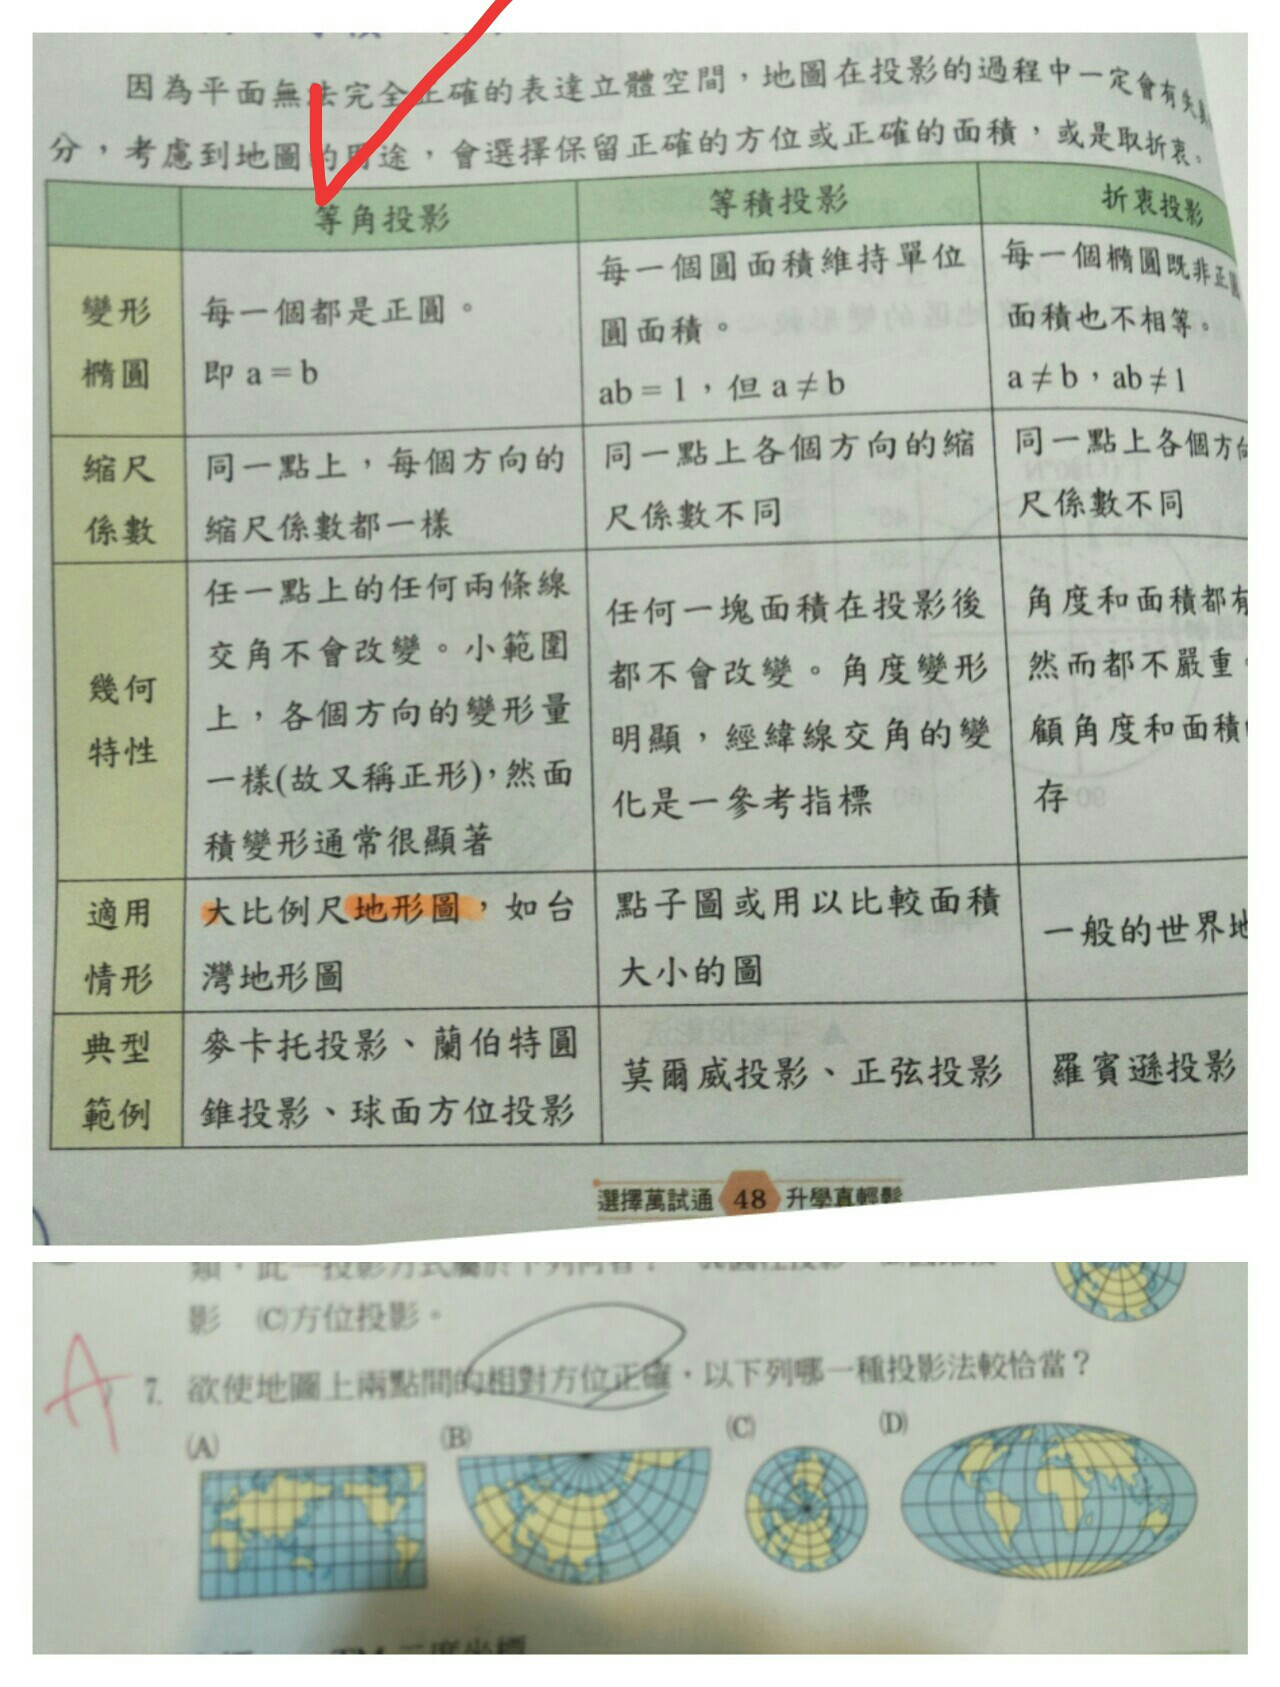 因為平面無法完全正確的表達立體空間，地圖在投影的過程中一定會有失真
分，考慮到地圖的用途，會選擇保留正確的方位或正確的面積，或是取折衷。
等角投影 等積投影 折衷投影
變形
橢圓
每一個都是正圓。
即 a = b
每一個圓面積維持單位
圓面積。
ab = 1，但 a ≠ b
每一個橢圓既非正圓
面積也不相等。
a ≠ b，ab ≠ 1
縮尺
係數
同一點上，每個方向的
縮尺係數都一樣
同一點上各個方向的縮
尺係數不同
同一點上各個方向
尺係數不同
幾何
特性
任一點上的任何兩條線
交角不會改變。小範圍
上，各個方向的變形量
一樣(故又稱正形)，然面
積變形通常很顯著
任何一塊面積在投影後
都不會改變。角度變形
明顯，經緯線交角的變
化是一參考指標
角度和面積都有
然而都不嚴重。
顧角度和面積
存
適用
情形
大比例尺地形圖，如台
灣地形圖
點子圖或用以比較面積
大小的圖
一般的世界地
典型
範例
麥卡托投影、蘭伯特圓
錐投影、球面方位投影
莫爾威投影、正弦投影
羅賓遜投影
選擇萬試通 48 升學真輕鬆
類，此一投影方式屬於下列何者？
影 (C)方位投影。
A 7. 欲使地圖上兩點間的相對方位正確，以下列哪一種投影法較恰當？
(A) (B) (C) (D)
TM 二度坐標